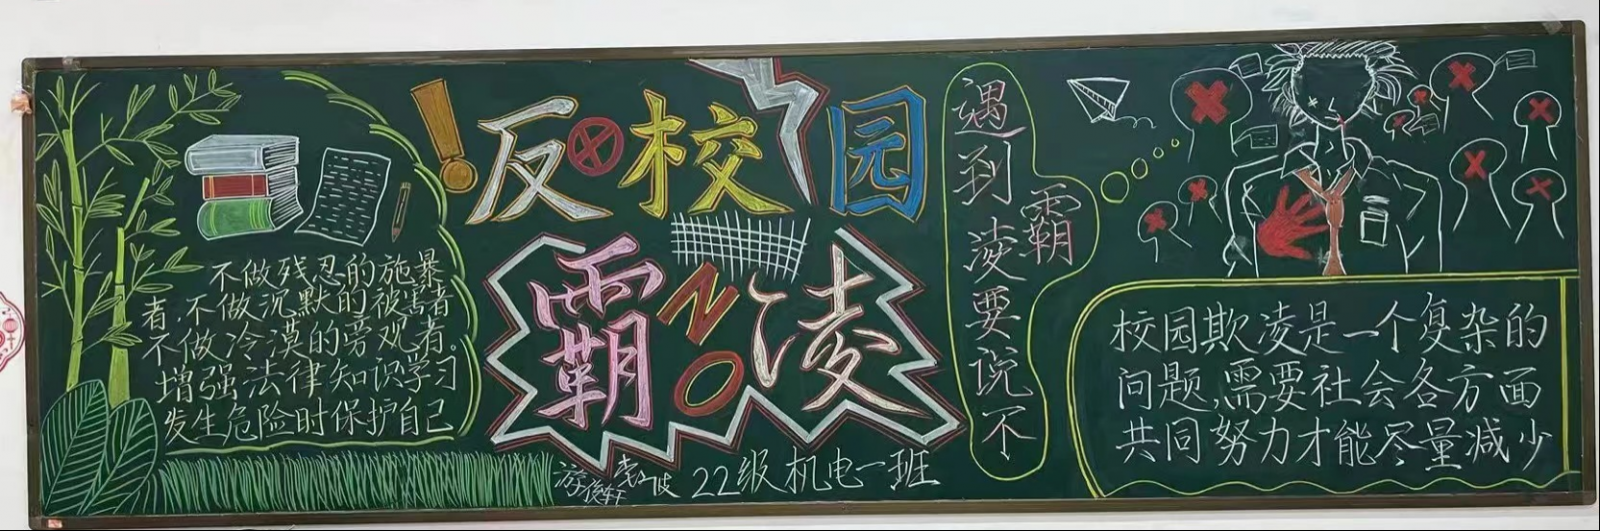 反校园
霸凌
NO
不做残忍的施暴
者,不做沉默的被害者
不做冷漠的旁观者。
增强法律知识学习
发生危险时保护自己
遇到霸凌要说不
校园欺凌是一个复杂的
问题,需要社会各方面
共同努力才能尽量减少
22级机电一班